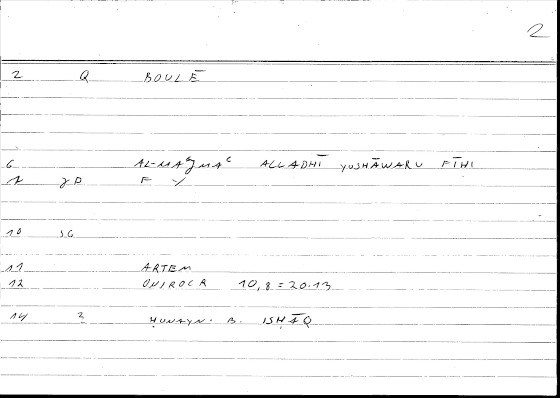 2
2 Q BOULĒ
6 AL-MAǦMAʿ ALLADHĪ YUSHĀWARU FĪHI
7 γP F Y
10 SG
11 ARTEM
12 ONIROCR 10,8 = 20.13
14 2 ḤUNAYN. B. ISḤĀQ